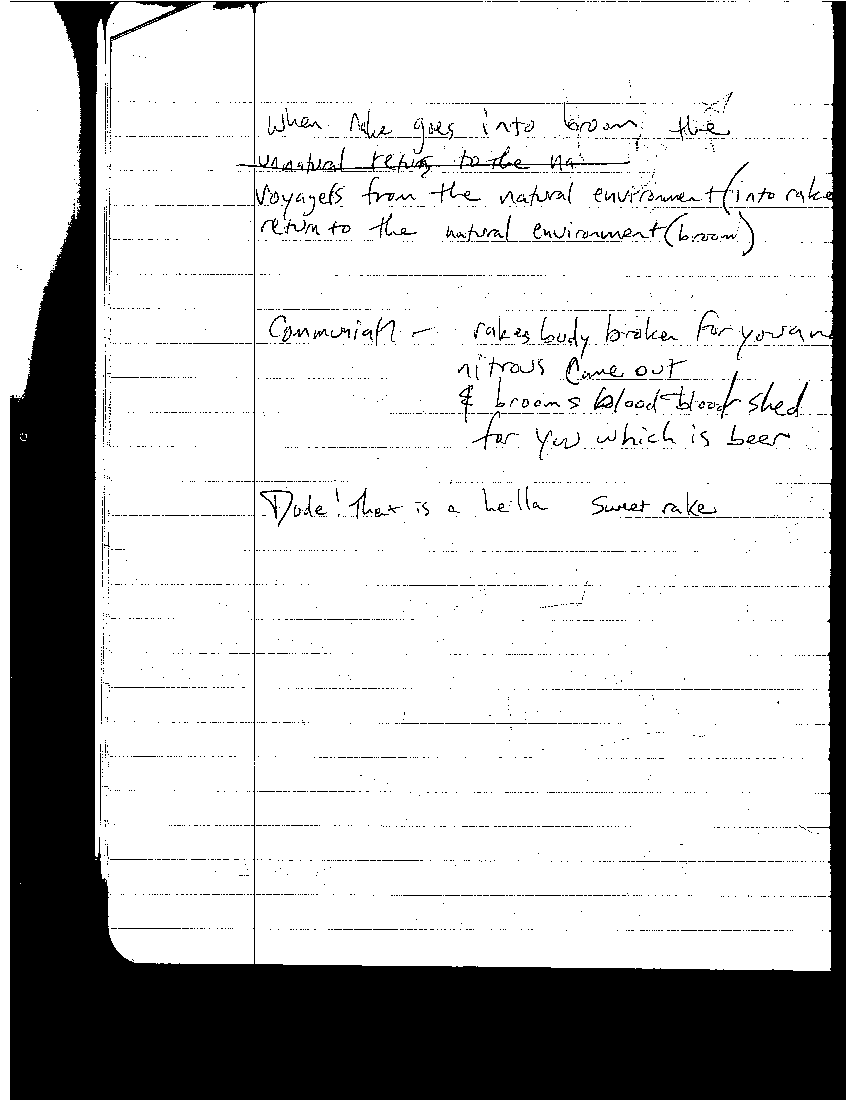 When rake goes into broom, the
unnatural return to the na
Voyagers from the natural environment (into rake
return to the natural environment (broom)
Communion - rakes body broken for you and
nitrous came out
& brooms blood blood shed
for you which is beer
Dude! That is a hella sweet rake